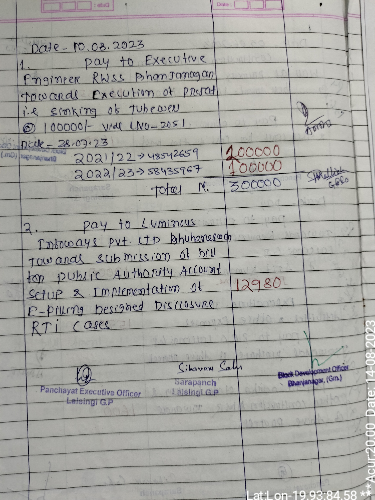 Date - 10.08.2023
1. Pay to Executive
Engineer RWSS Bhanjanagar
towards Execution of
i.e sinking of tubewell
@ 100000/- vide LNO-2051
Date - 28.07.23
2021/22 → 48542659 200000
2022/23 → 58435967 100000
Total 300000
2. Pay to Luminous
Infoways Pvt. LTD Bhubaneswar
towards submission of bill
for public Authority Account
Setup & Implementation of 12980
E-Filling Designed Disclosure
RTI cases
Panchayat Executive Officer
Lalsingi G.P
Sarapanch
Lalsingi G.P
Block Development Officer
Bhanjanagar, (Gm.)
Lat Lon-19.93:84.58 *** Acu: 20.00 Date: 14-08-2023